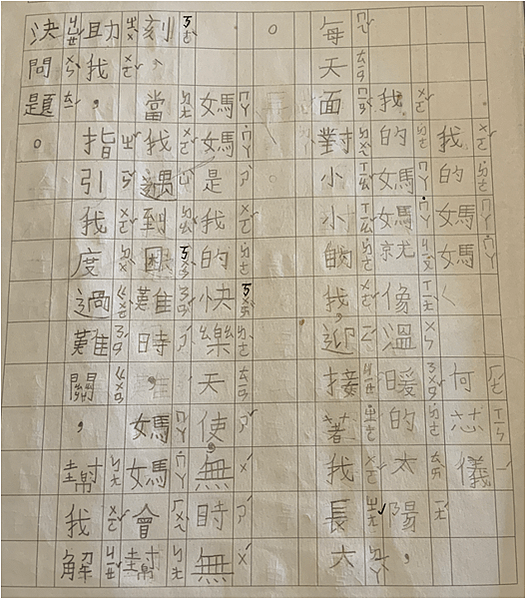 我的媽媽 何芯儀
我的媽媽就像溫暖的太陽,
每天面對小小的我,迎接著我長大
。
媽媽是我的快樂天使,無時無
刻,當我遇到困難時,媽媽會幫
助我,指引我度過難關,幫我解
決問題。